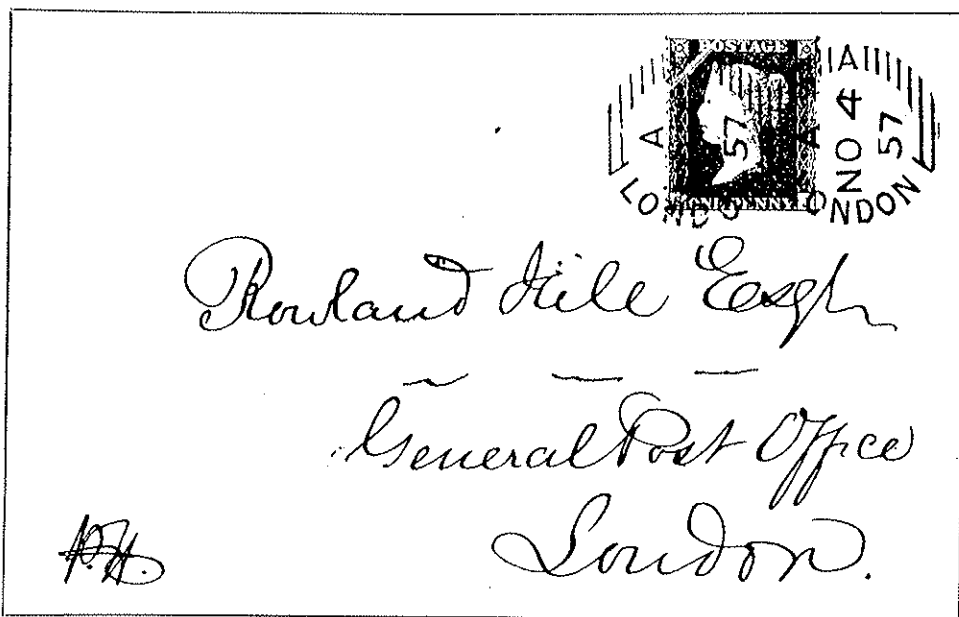 POSTAGE
ONE PENNY
A
57
LONDON
A
A
NO 4
57
LONDON
Rowland Hill Esqr
General Post Office
London.
P.H.